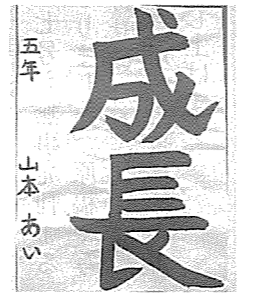 成長
五年 山本 あい